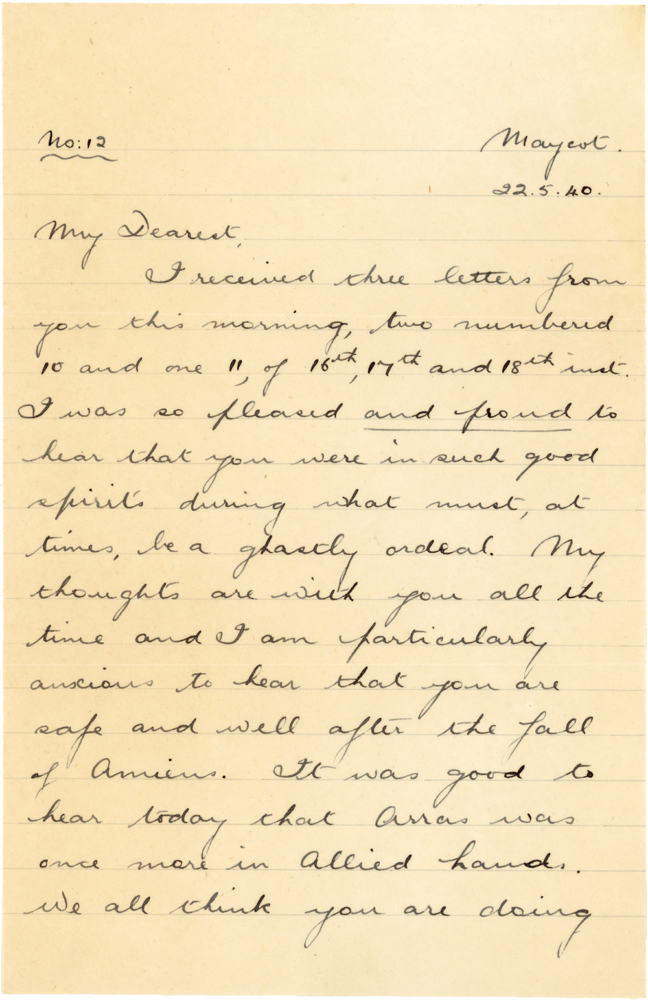 No: 12
Maycot.
22.5.40.
My Dearest,
I received three letters from
you this morning, two numbered
10 and one 11, of 16th, 17th and 18th inst.
I was so pleased and proud to
hear that you were in such good
spirits during what must, at
times, be a ghastly ordeal. My
thoughts are with you all the
time and I am particularly
anxious to hear that you are
safe and well after the fall
of Amiens. It was good to
hear today that Arras was
once more in Allied hands.
We all think you are doing